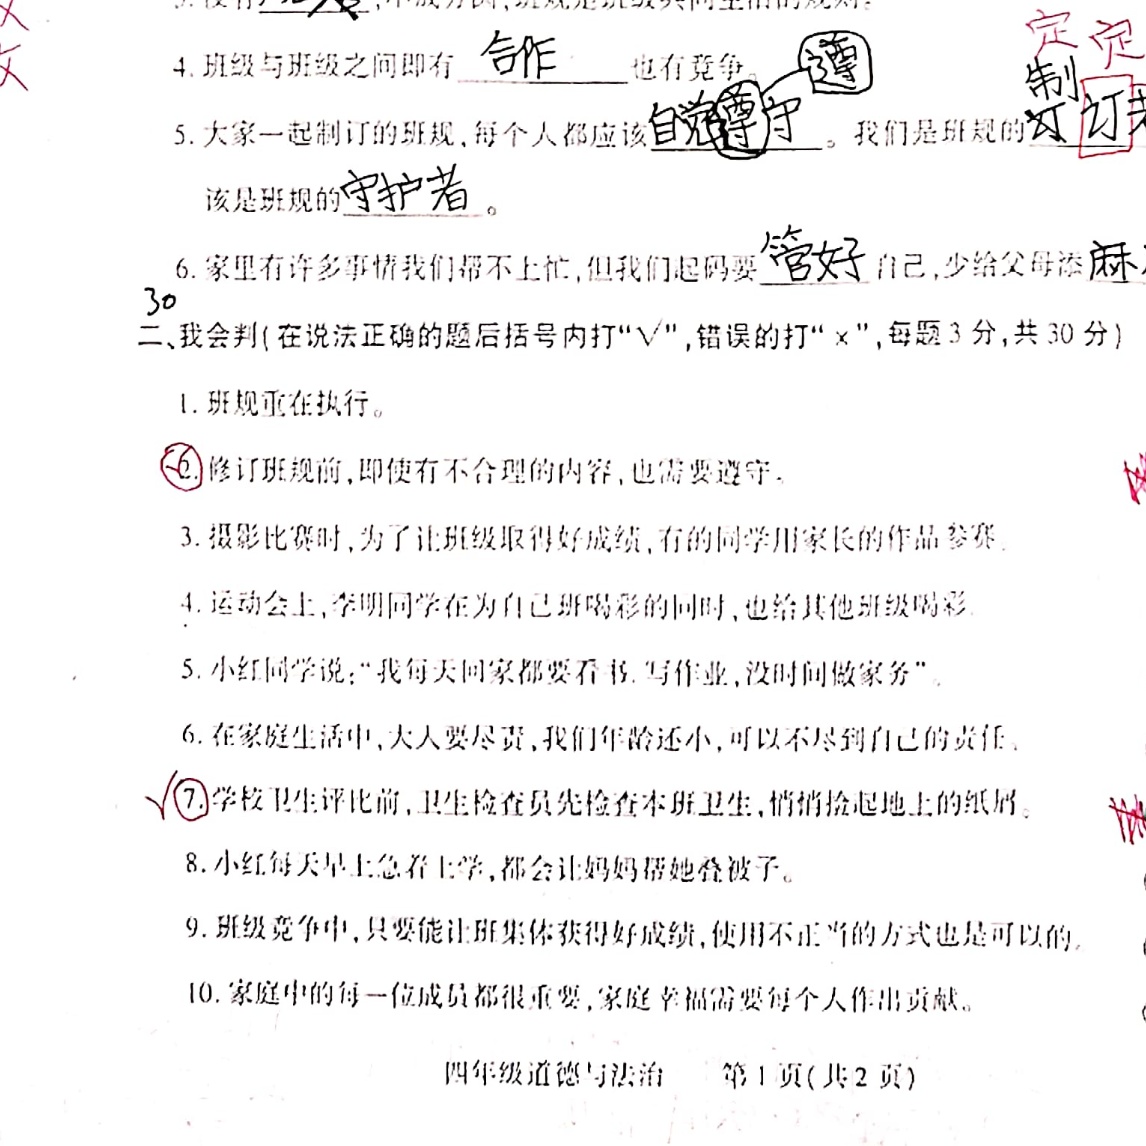 4. 班级与班级之间即有 合作 也有竞争。 遵
定 定
制
5. 大家一起制订的班规,每个人都应该自觉尊守。我们是班规的订 订
该是班规的守护者。
6. 家里有许多事情我们帮不上忙,但我们起码要管好自己,少给父母添麻
30
二、我会判(在说法正确的题后括号内打“√”,错误的打“×”,每题3分,共30分)
1. 班规重在执行。
2. 修订班规前,即使有不合理的内容,也需要遵守。
3. 摄影比赛时,为了让班级取得好成绩,有的同学用家长的作品参赛。
4. 运动会上,李明同学在为自己班喝彩的同时,也给其他班级喝彩。
5. 小红同学说:“我每天回家都要看书、写作业,没时间做家务”。
6. 在家庭生活中,大人要尽责,我们年龄还小,可以不尽到自己的责任。
√7. 学校卫生评比前,卫生检查员先检查本班卫生,悄悄捡起地上的纸屑。
8. 小红每天早上急着上学,都会让妈妈帮她叠被子。
9. 班级竞争中,只要能让班集体获得好成绩,使用不正当的方式也是可以的。
10. 家庭中的每一位成员都很重要,家庭幸福需要每个人作出贡献。
四年级道德与法治 第1页(共2页)